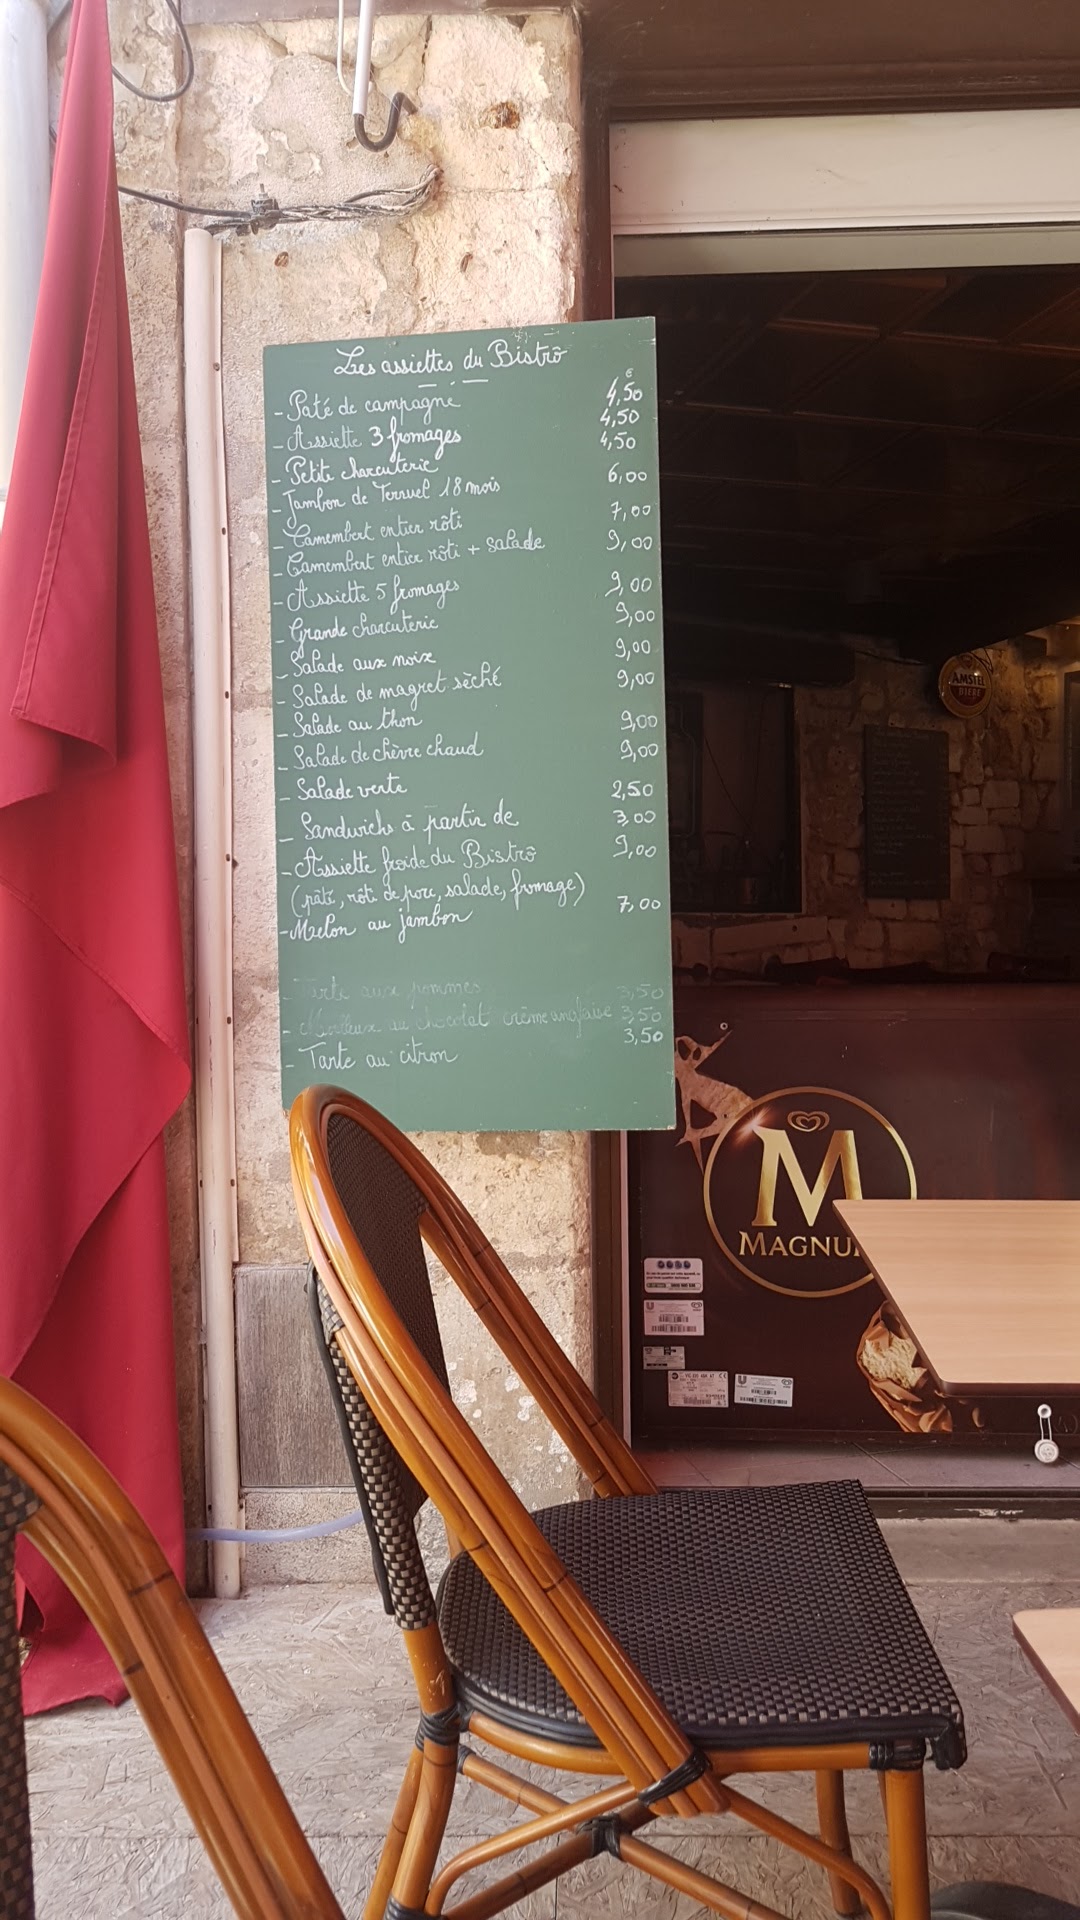 Les assiettes du Bistrô
- Paté de campagne 4,50 €
- Assiette 3 fromages 4,50
- Petite charcuterie 4,50
- Jambon de Terruel 18 mois 6,00
- Camembert entier rôti 7,00
- Camembert entier rôti + salade 9,00
- Assiette 5 fromages 9,00
- Grande charcuterie 9,00
- Salade aux noix 9,00
- Salade de magret sèché 9,00
- Salade au thon 9,00
- Salade de chèvre chaud 9,00
- Salade verte 2,50
- Sandwichs à partir de 3,00
- Assiette froide du Bistrô 9,00
(pâté, rôti de porc, salade, fromage)
- Melon au jambon 7,00
- Tarte aux pommes 3,50
- Moelleux au chocolat crème anglaise 3,50
- Tarte au citron 3,50
AMSTEL
BIERE
M
MAGNU